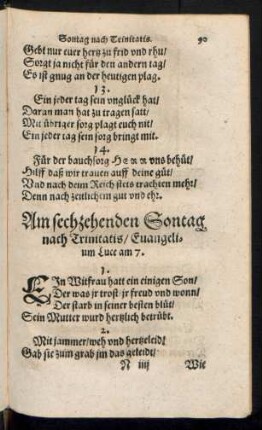 Sontag nach Trinitatis. 90
Gebt nur euer hertz zu frid vnd rhu/
Sorgt ja nicht für den andern tag/
Es ist gnug an der heutigen plag.
13.
Ein jeder tag sein vnglück hat/
Daran man hat zu tragen satt/
Mit übriger sorg plagt euch nit/
Ein jeder tag sein sorg bringt mit.
14.
Für der bauchsorg HERR vns behüt/
Hilff daß wir trauen auff deine güt/
Vnd nach deim Reich stets trachten mehr/
Denn nach zeitlichem gut vnd ehr.
Am sechzehenden Sontag
nach Trinitatis/ Euangeli-
um Luce am 7.
1.
EIn Witfrau hatt ein einigen Son/
Der was jr trost jr freud vnd wonn/
Der starb in seiner besten blüt/
Sein Mutter wurd hertzlich betrübt.
2.
Mit jammer/ weh vnd hertzeleid/
Gab sie zum grab jm das geleidt/
N iiij Wie